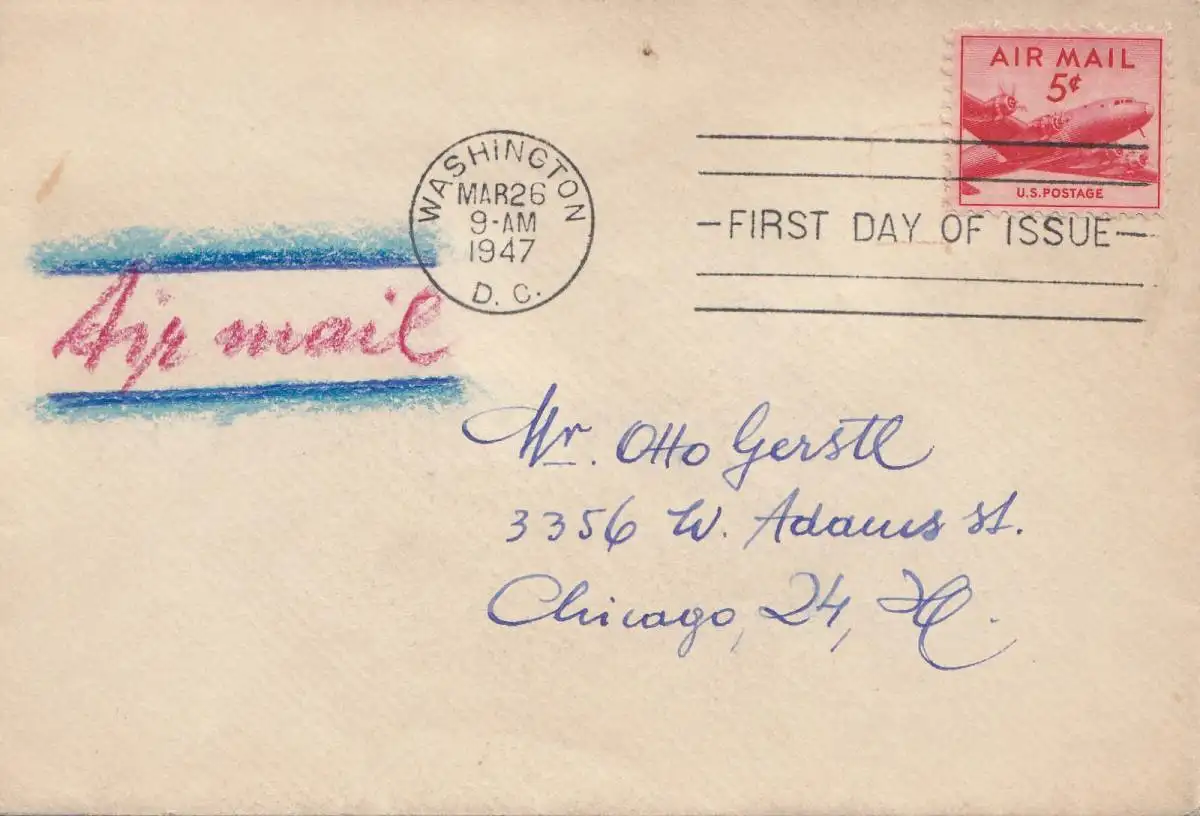 AIR MAIL
5¢
U.S. POSTAGE
WASHINGTON
MAR 26
9-AM
1947
D. C.
—FIRST DAY OF ISSUE—
Air mail
Mr. Otto Gerstl
3356 W. Adams St.
Chicago, 24, Ill.